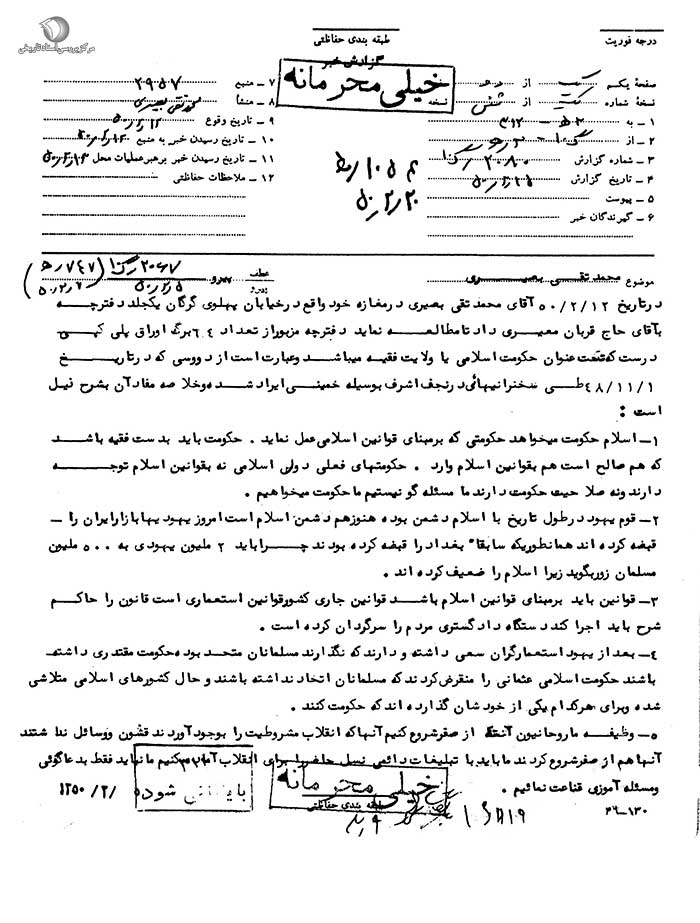 مرکز بررسی اسناد تاریخی
طبقه بندی حفاظتی
درجه فوریت
گزارش خبر
خیلی محرمانه
صفحهٔ یکم از
نسخهٔ شماره از شش نسخه
۱ - به ۳۱۲
۲ - از
۳ - شماره گزارش ۲۰۸۰
۴ - تاریخ گزارش
۵ - پیوست
۶ - گیرندگان خبر
۷ - منبع ۲۹۵۷
۸ - منشأ محمد تقی بصیری
۹ - تاریخ وقوع
۱۰ - تاریخ رسیدن خبر به منبع
۱۱ - تاریخ رسیدن خبر برهبر عملیات محل
۱۲ - ملاحظات حفاظتی
۵۰/۲/۲۰
موضوع محمد تقی بصیری
عطف پیرو
درتاریخ ۵۰/۲/۱۲ آقای محمد تقی بصیری درمغازه خود واقع درخیابان پهلوی گرگان یکجلد دفترچه
بآقای حاج قربان معیری داد تا مطالعه نماید دفترچه مزبور از تعداد ۶۴ برگ اوراق پلی کپی
درست که تحت عنوان حکومت اسلامی یا ولایت فقیه میباشد وعبارت است از دروسی که درتاریخ
۴۸/۱۱/۱ طی سخنرانیهائی درنجف اشرف بوسیله خمینی ایراد شده وخلاصه مفاد آن بشرح ذیل
است :
۱- اسلام حکومت میخواهد حکومتی که برمبنای قوانین اسلامی عمل نماید . حکومت باید بدست فقیه باشد
که هم صالح است هم بقوانین اسلام وارد . حکومتهای فعلی دولی اسلامی نه بقوانین اسلام توجه
دارند ونه صلاحیت حکومت دارند ما مسئله گو نیستیم ما حکومت میخواهیم .
۲- قوم یهود درطول تاریخ با اسلام دشمن بوده هنوزهم دشمن اسلام است امروز یهود یها بازارایران را -
قبضه کرده اند همانطوریکه سابقاً بغداد را قبضه کرده بودند چرا باید ۲ ملیون یهودی به ۵۰۰ ملیون
مسلمان زوربگوید زیرا اسلام را ضعیف کرده اند .
۳- قوانین باید برمبنای قوانین اسلام باشد قوانین جاری کشورقوانین استعماری است قانون را حاکم
شرح باید اجرا کند دستگاه دادگستری مردم را سرگردان کرده است .
۴- بعد از یهود استعمارگران سعی داشته و دارند که نگذارند مسلمانان متحد بوده حکومت مقتدری داشته
باشند حکومت اسلامی عثمانی را منقرض کردند که مسلمانان اتحاد نداشته باشند و حال کشورهای اسلامی متلاشی
شده وبرای هرکدام یکی از خودشان گذارده اند که حکومت کنند .
۵- وظیفه ما روحانیون آنستکه از صفرشروع کنیم آنها که انقلاب مشروطیت را بوجود آوردند قشون ووسائل نداشتند
آنها هم از صفرشروع کردند ما باید با تبلیغات دائمی نسل حاضر را برای انقلاب آماده کنیم ما نباید فقط بدعاگوئی
ومسئله آموزی قناعت نمائیم .
خیلی محرمانه
طبقه بندی حفاظتی
۱۳۵۰/۲/
۳۶-۱۳۰